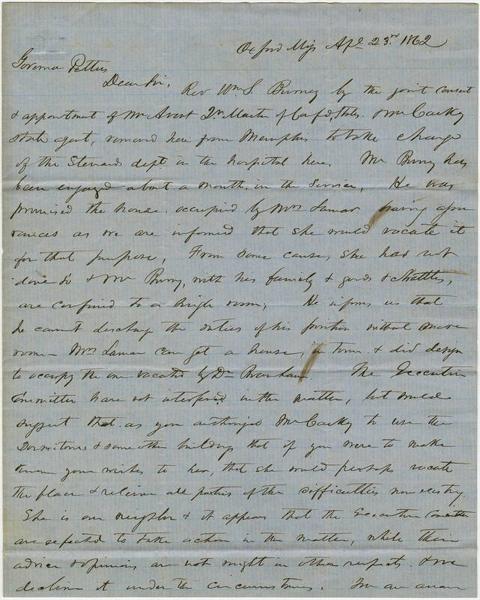 Oxford Miss Apl 23rd 1862
Governor Pettus
Dear Sir, Rev Wm S Burney by the joint consent
& appointment of Mr Avent Qr Master of Confed Sts. & Mr Caskey
State agent, removed here from Memphis to take charge
of the Stewards dept in the hospital here. Mr Burney has
been engaged about a month in the service, He was
promised the house occupied by Mrs Lamar having given
assurances as we are informed that she would vacate it
for that purpose, From some cause, she has not
done so & Mr Burney, with his family & goods & chattles,
are confined to a single room, He informs us that
he cannot discharge the duties of his position without more
room Mrs Lamar can get a house, in town & did design
to occupy the one vacated by Dr Branham The Executive
Committee have not interfered in the matter, but would
suggest that as you authorized Mr Caskey to use the
Dormitories & some other buildings that if you were to make
known your wishes to her, that she would perhaps vacate
the place & relieve all parties of the difficulties now existing
She is our neighbor & it appears that the Executive Committee
are expected to take action in the matter, while their
advice & opinions are not sought in other respects & we
decline it under the circumstances. For an